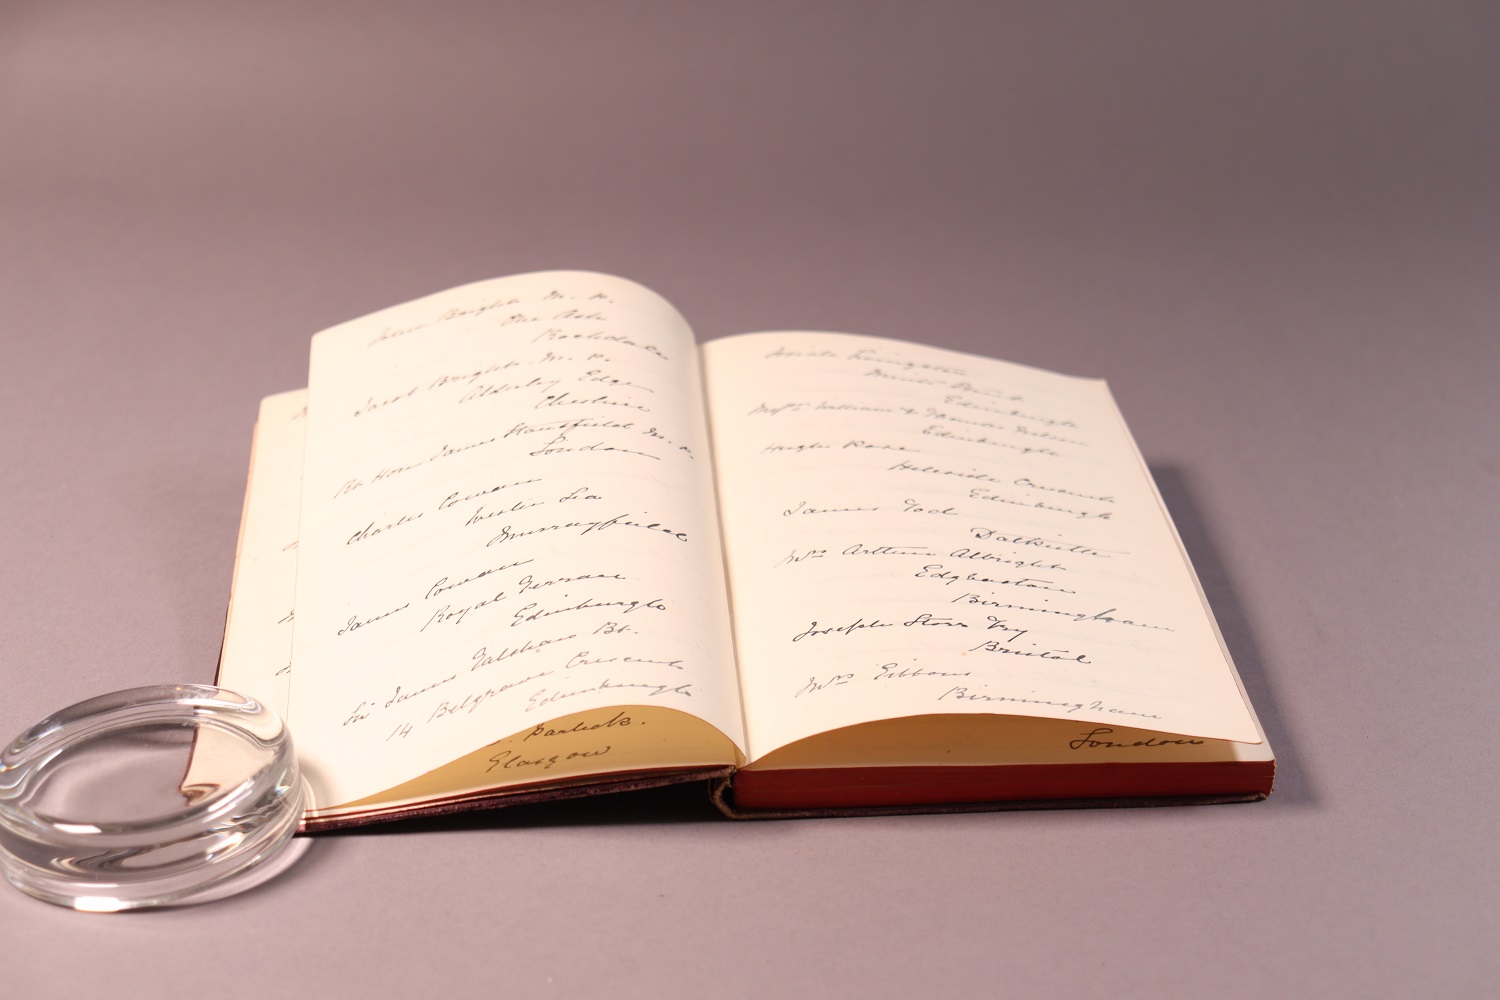 John Bright M. P.
One Ash
Rochdale
Jacob Bright. M. P.
Alderley Edge
Cheshire
Rt. Hon. James Stansfeld M. P.
London
Charles Cowan
Wester Lea
Murrayfield
James Cowan
Royal Terrace
Edinburgh
Sir James Falshaw Bt.
14 Belgrave Crescent
Edinburgh
Garlick.
Glasgow
Josiah Livingston
Minto
Edinburgh
Messrs William & Thomas Nelson
Edinburgh
Hugh Rose
Crescent
Edinburgh
James Tod
Dalkeith
Mrs Arthur Albright
Edgbaston
Birmingham
Joseph Storrs Fry
Bristol
Mrs Gibbons
Birmingham
London